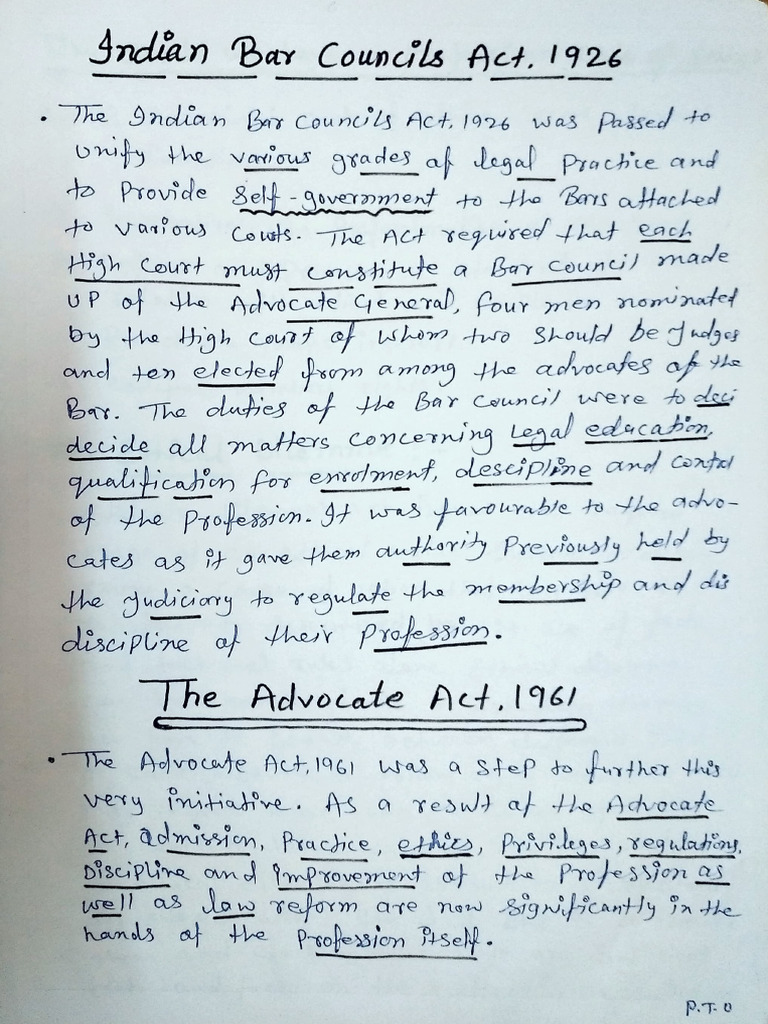 Indian Bar Councils Act. 1926
• The Indian Bar Councils Act, 1926 was passed to
unify the various grades of legal Practice and
to Provide Self-government to the Bars attached
to various Courts. The Act required that each
High Court must constitute a Bar Council made
up of the Advocate General, four men nominated
by the High Court of whom two should be Judges
and ten elected from among the advocates of the
Bar. The duties of the Bar Council were to deci
decide all matters concerning Legal education,
qualification for enrolment, descipline and control
of the Profession. It was favourable to the advo-
cates as it gave them authority Previously held by
the judiciary to regulate the membership and dis
discipline of their Profession.
The Advocate Act, 1961
• The Advocate Act, 1961 was a step to further this
very initiative. As a result of the Advocate
Act, admission, Practice, ethics, Privileges, regulations,
Discipline and improvement of the Profession as
well as law reform are now significantly in the
hands of the Profession itself.
P.T.O